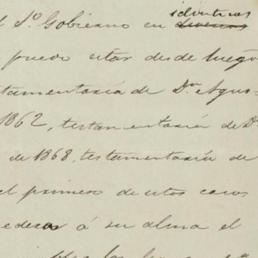 el Sr. Gobierno en idénticas
puedo citar desde luego
tamentaría de Dn. Agus-
1862, testamentaría de D
de 1868, testamentaría de
el primero de estos casos
á su alma el